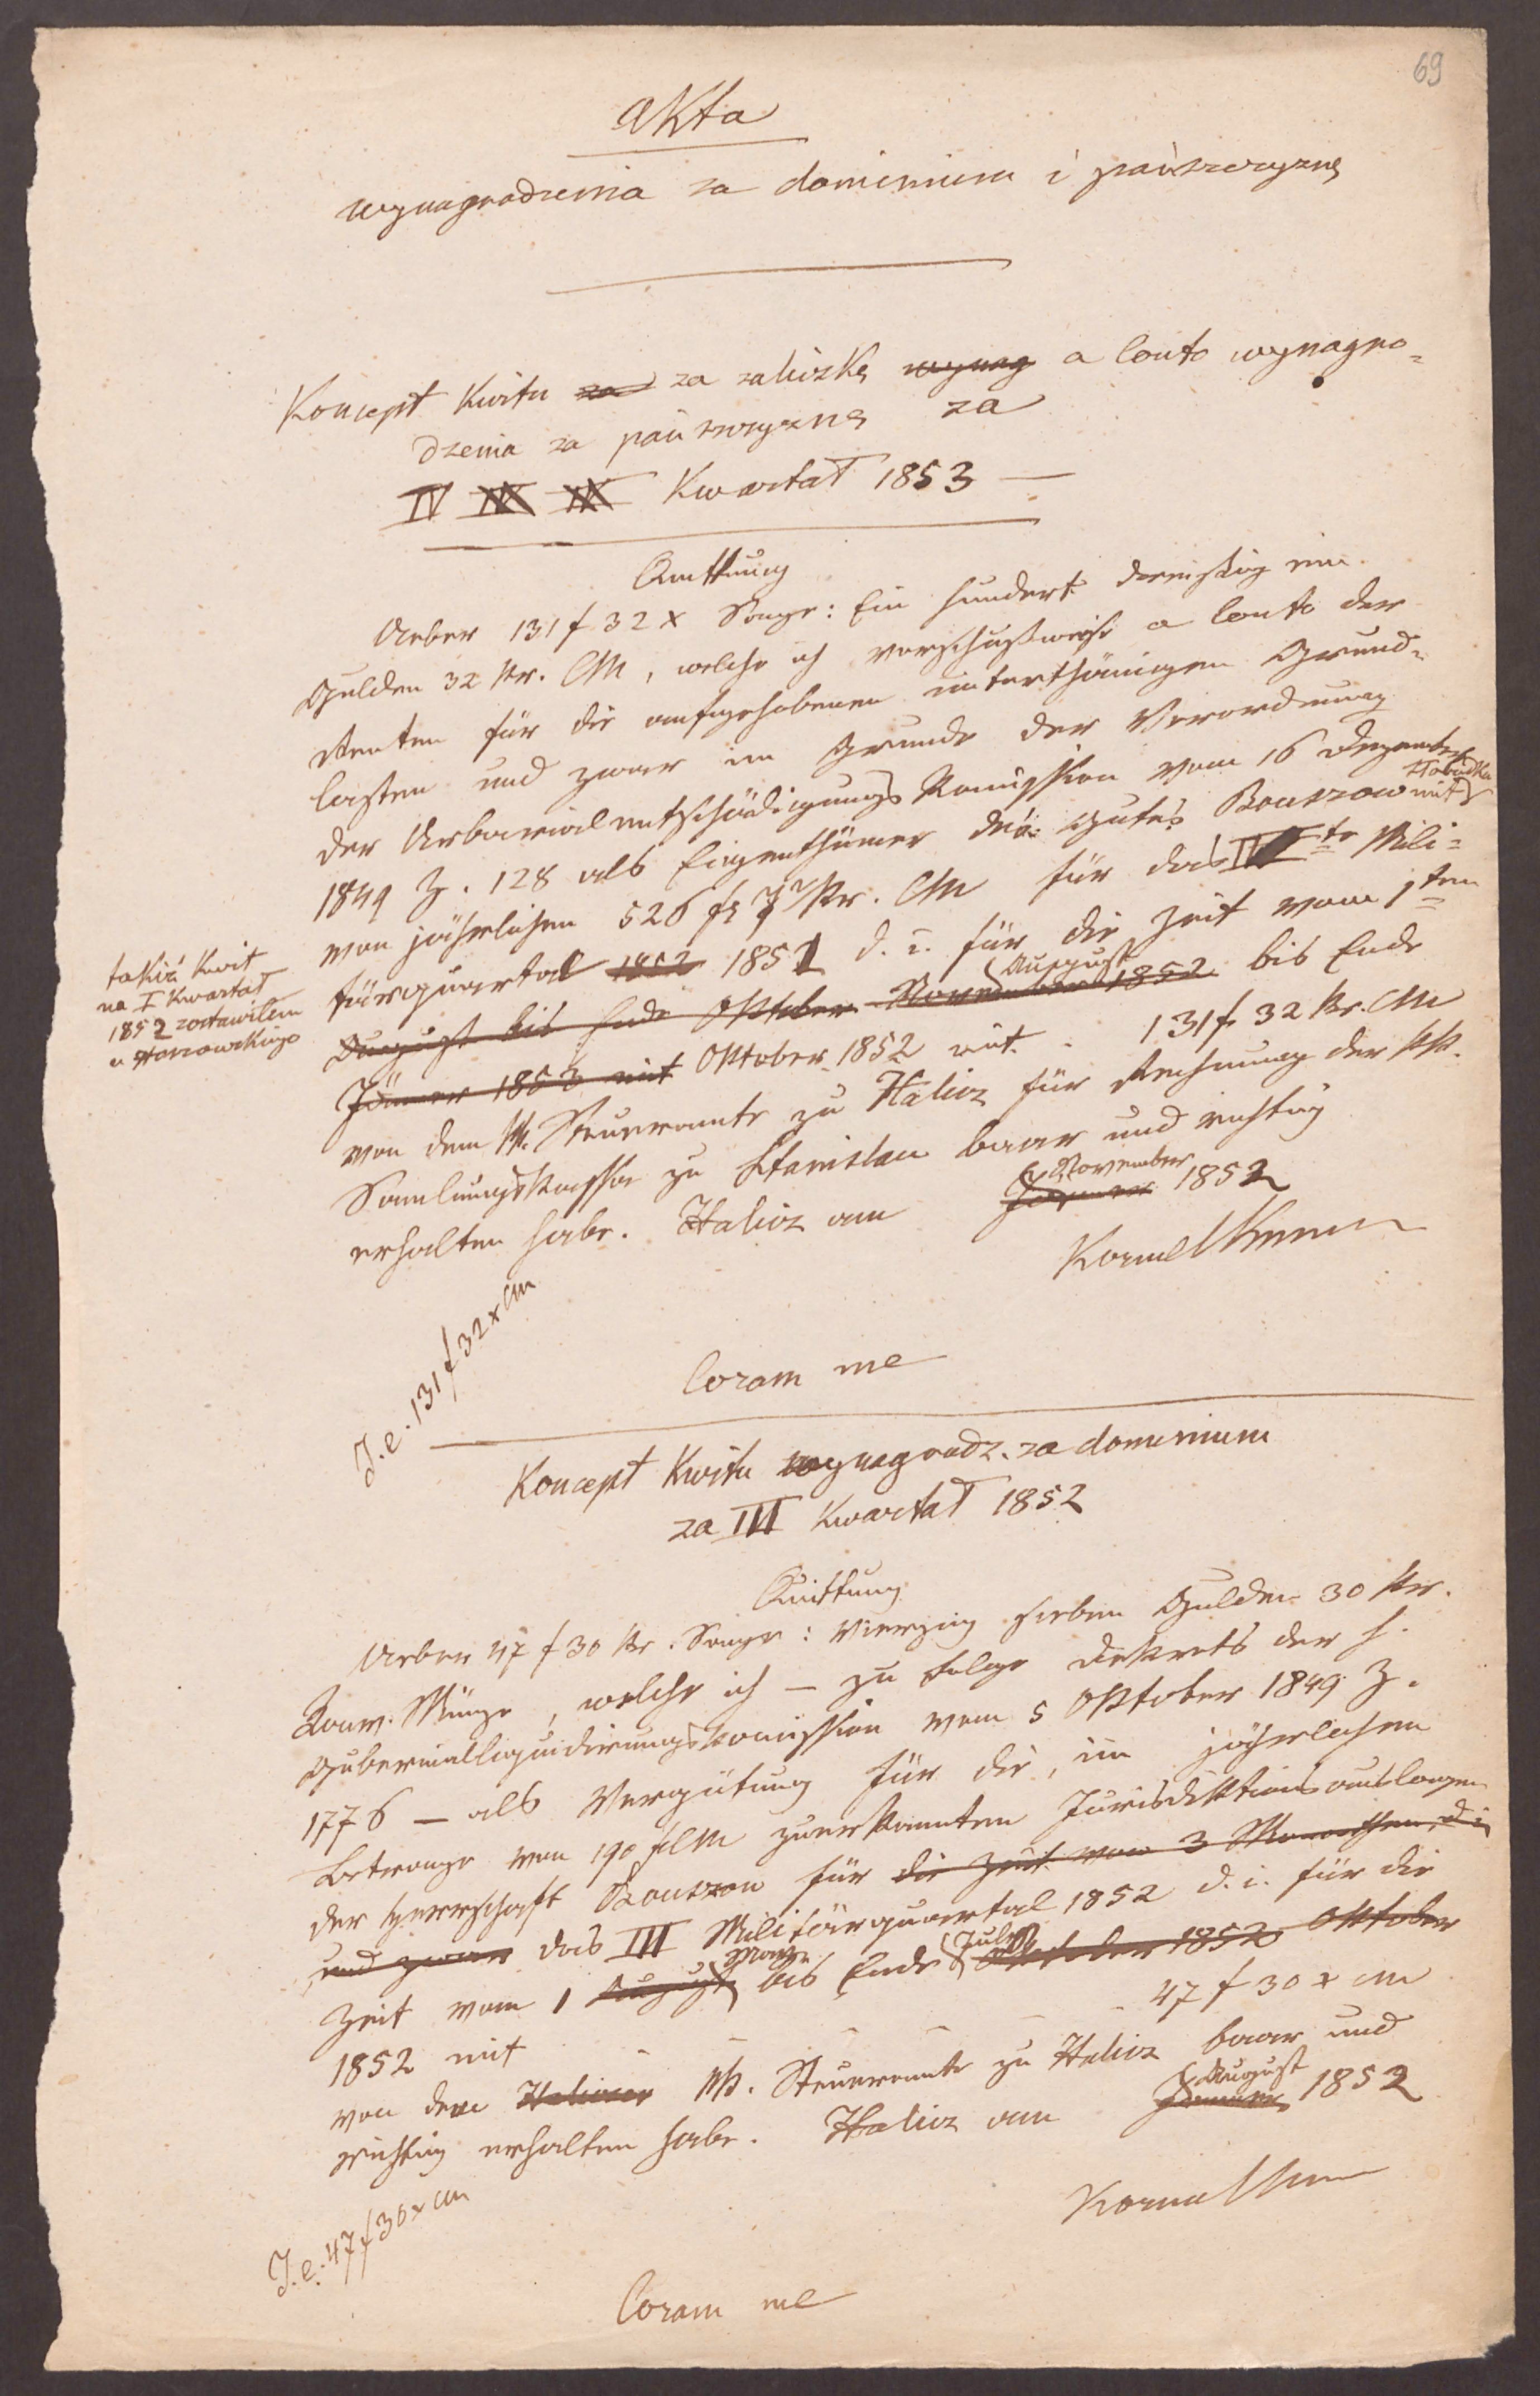 69
Akta
wynagrodzenia za dominium i pańszczyznę
Koncept Kwitu za za zaliczkę wynag a Conto wynagro=
dzenia za pańszczyznę za
IV Kwartał 1853 —
Quittung
Ueber 131 f 32 x Sage: Ein hundert dreißig ein
Gulden 32 kr. CM, welche ich vorschußweise a Conto der
Renten für die aufgehobenen unterthänigen Grund=
lasten und zwar im Grunde der Verordnung
der Urbarialentschädigungs Komission vom 16 Dezember
1849 Z. 128 als Eigenthümer des Gutes Bouszow mit
von jährlichen 526 f kr. CM für das IV te Mili=
tärquartal 1852 1852 d. i. für die Zeit vom 1ten
August
August bis Ende Oktober November 1852 bis Ende
Jänner 1853 mit Oktober 1852 mit - 131 f 32 kr. CM
takiż kwit
na I Kwartał
1852 zostawiłem
u
von dem kk. Steueramte zu Halicz für Rechnung der kk.
Samlungskasse zu Stanislau baar und richtig
erhalten habe. Halicz am Jänner November 1852
Kornel
I. e. 131 f 32 x CM
Coram me
Koncept Kwitu wynagrodz. za dominium
za III Kwartał 1852
Quittung
Ueber 47 f 30 kr. Sage: Vierzig sieben Gulden 30 kr.
Konv. Münze, welche ich — zu Folge Dekrets der h.
Gubernialliquidirungskomission vom 5 Oktober 1849 Z.
1776 — als Vergütung für die, im jährlichen
Betrage von 190 f CM zuerkannten Jurisdiktionsauslagen
der Herrschaft Bouszow für die Zeit von 3 Monathen, d i
und zwar das III Militärquartal 1852 d. i. für die
Zeit vom 1 August bis Ende July Oktober 1852 Oktober
1852 mit - - - - 47 f 30 x CM
von dem Haliczer kk. Steueramte zu Halicz baar und
richtig erhalten habe. Halicz am Jänner August 1852
Kornel
I. e. 47 f 30 x CM
Coram me